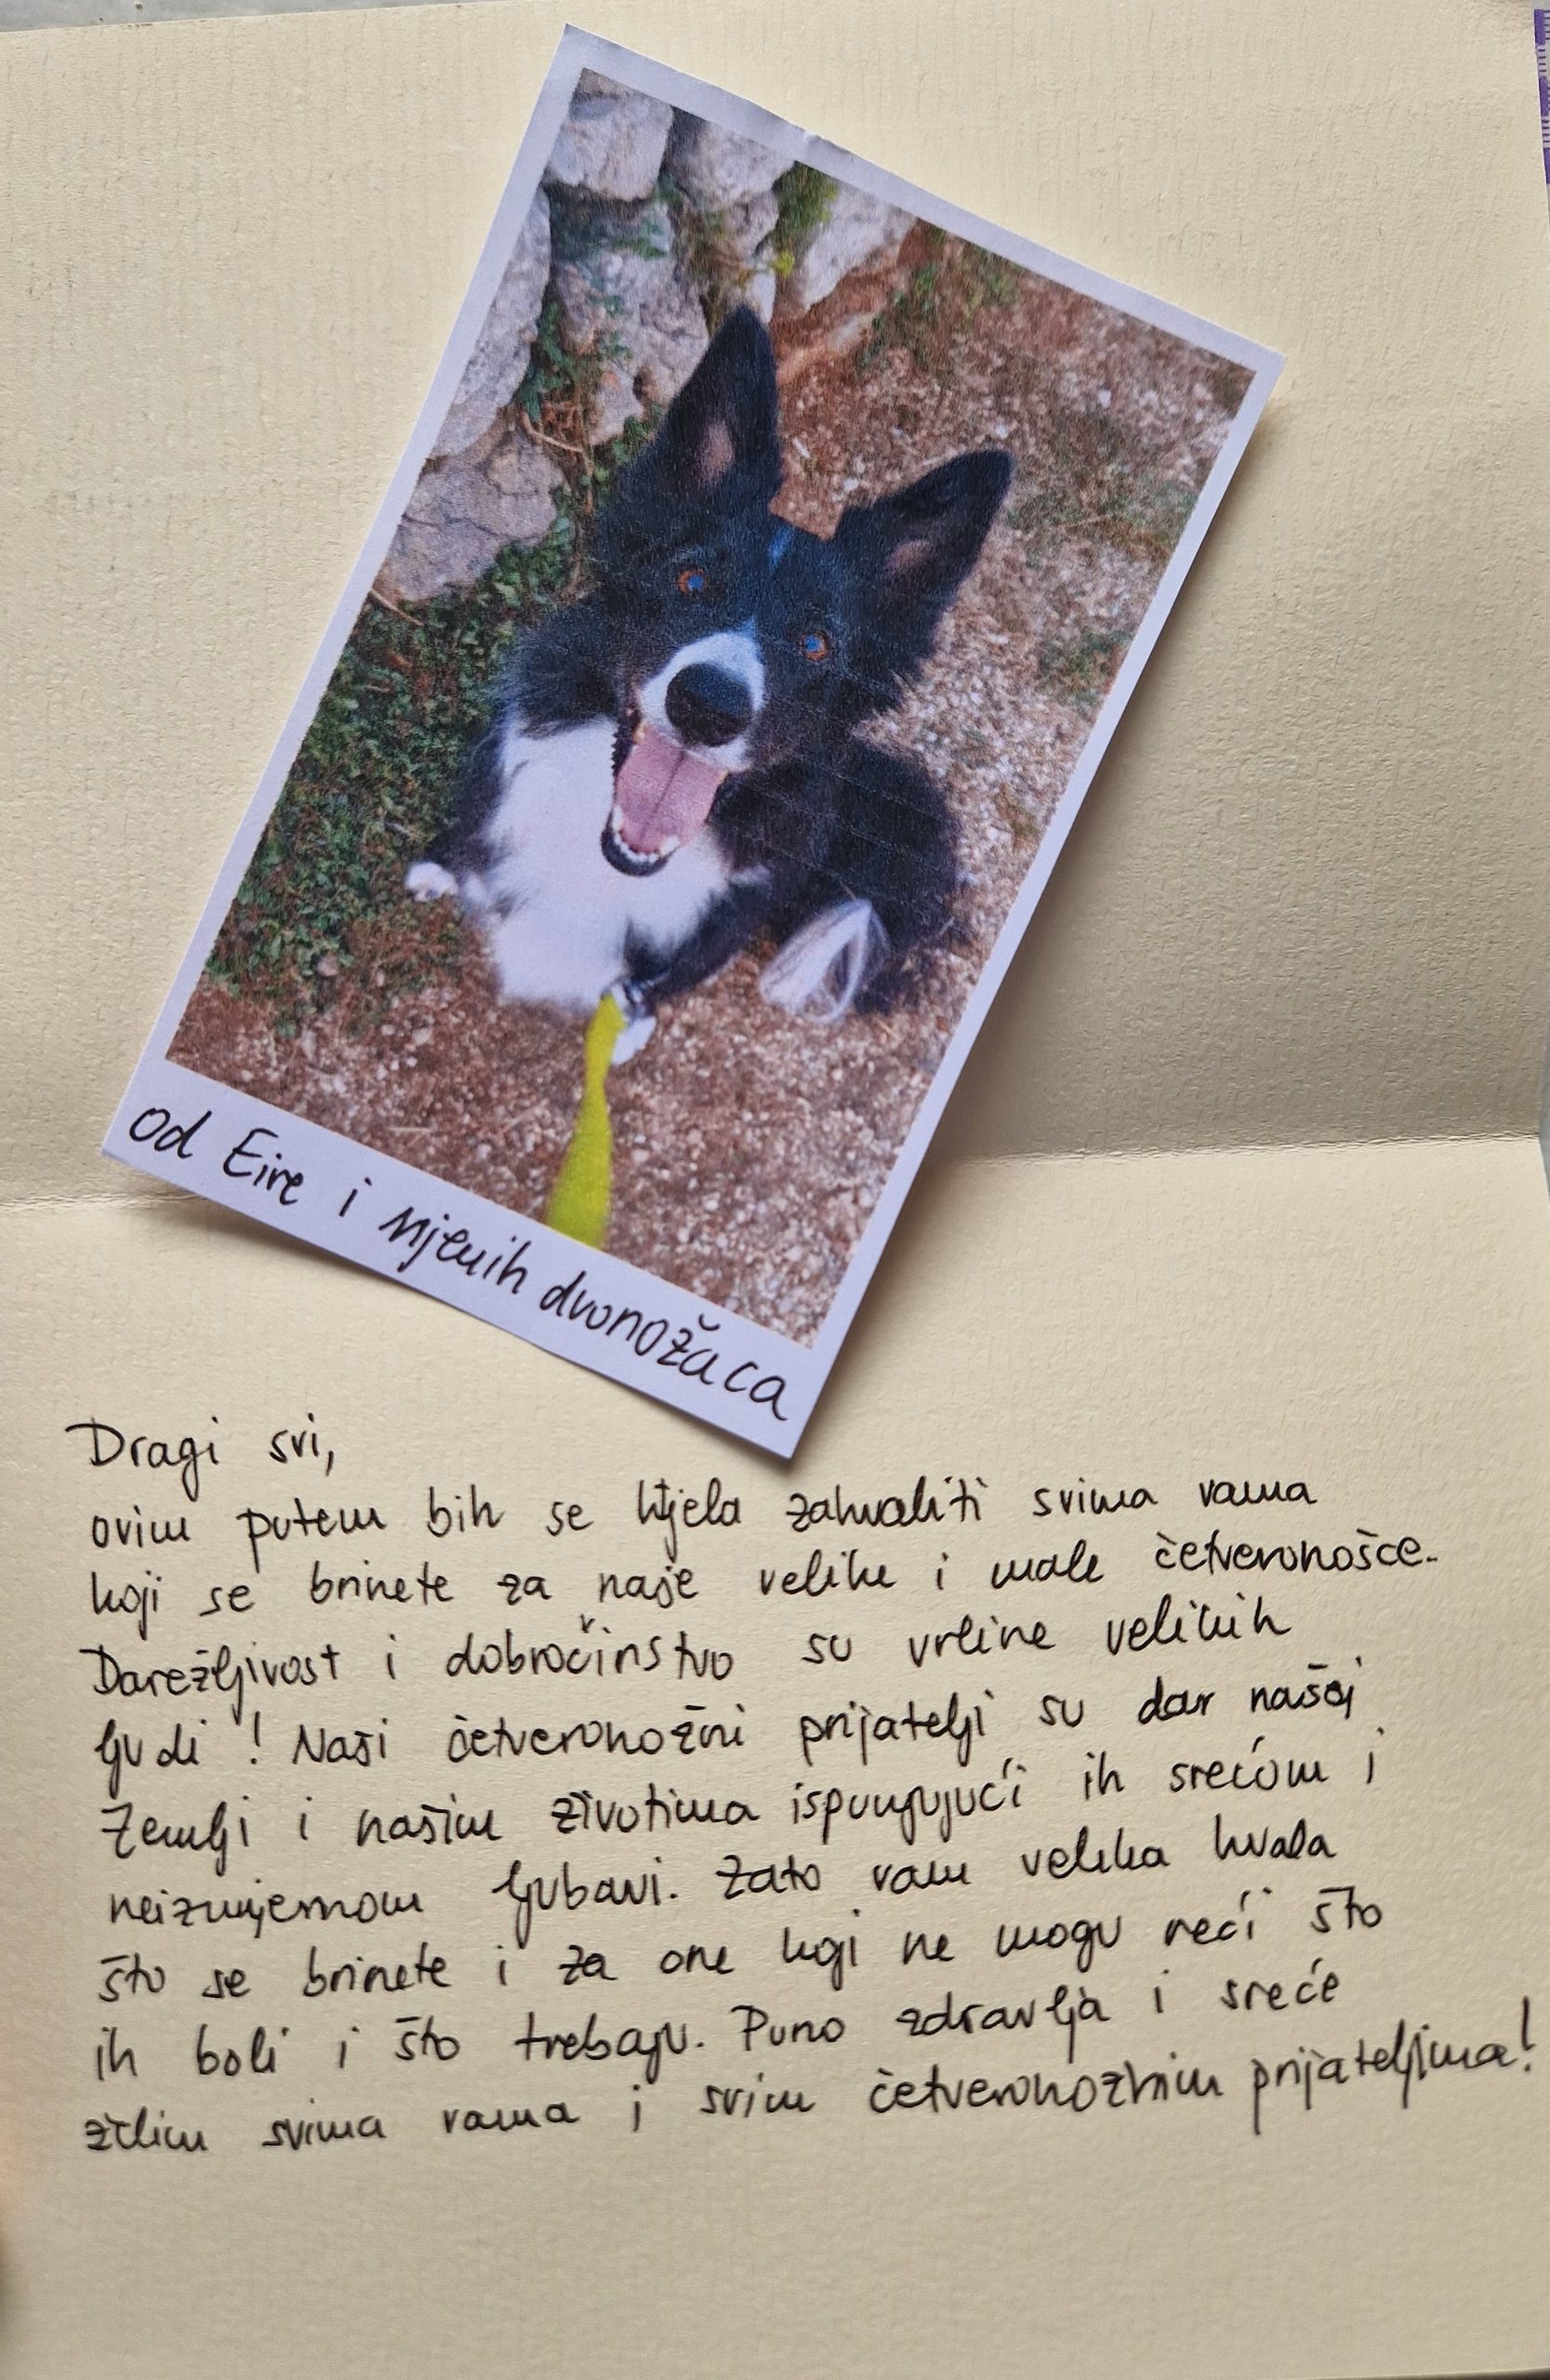 Od Eire i njenih dvonožaca
Dragi svi,
ovim putem bih se htjela zahvaliti svima vama
koji se brinete za naše velike i male četveronošce.
Darežljivost i dobročinstvo su vrline velikih
ljudi! Naši četveronožni prijatelji su dar našoj
Zemlji i našim životima ispunjujući ih srećom i
neizmjernom ljubavi. Zato vam velika hvala
što se brinete i za one koji ne mogu reći što
ih boli i što trebaju. Puno zdravlja i sreće
želim svima vama i svim četveronožnim prijateljima!